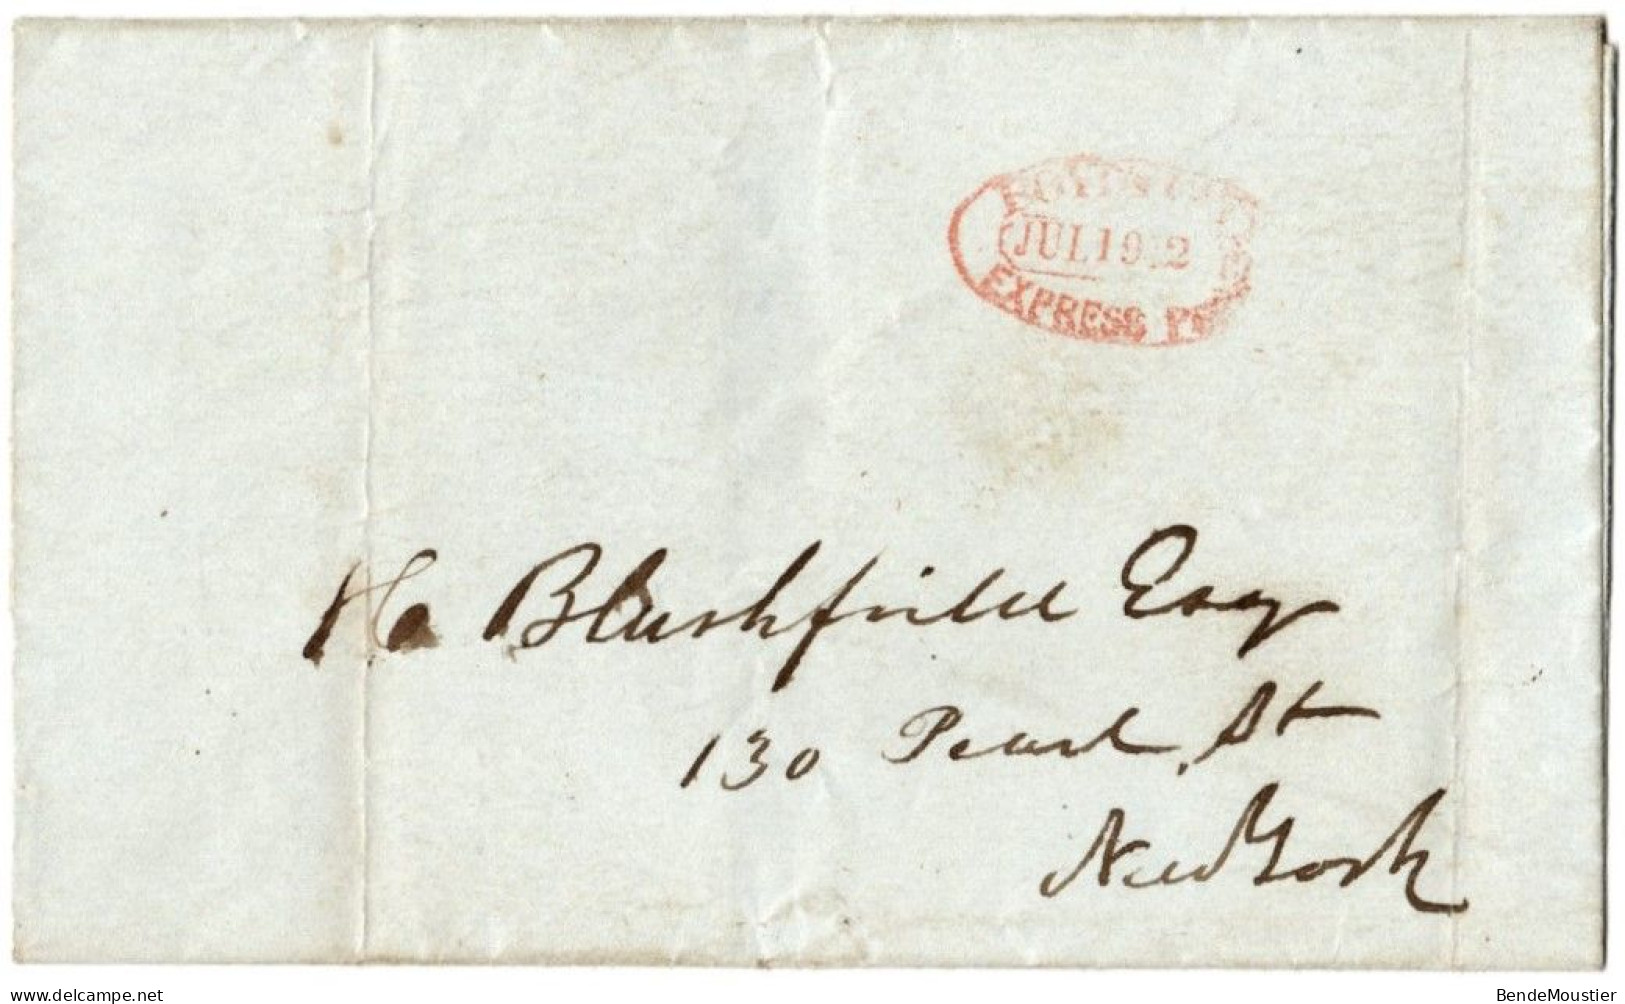 JUL 19 .2
EXPRESS
Blushfield Esq
130 Pearl St
New York
www.delcampe.net
BendeMoustier